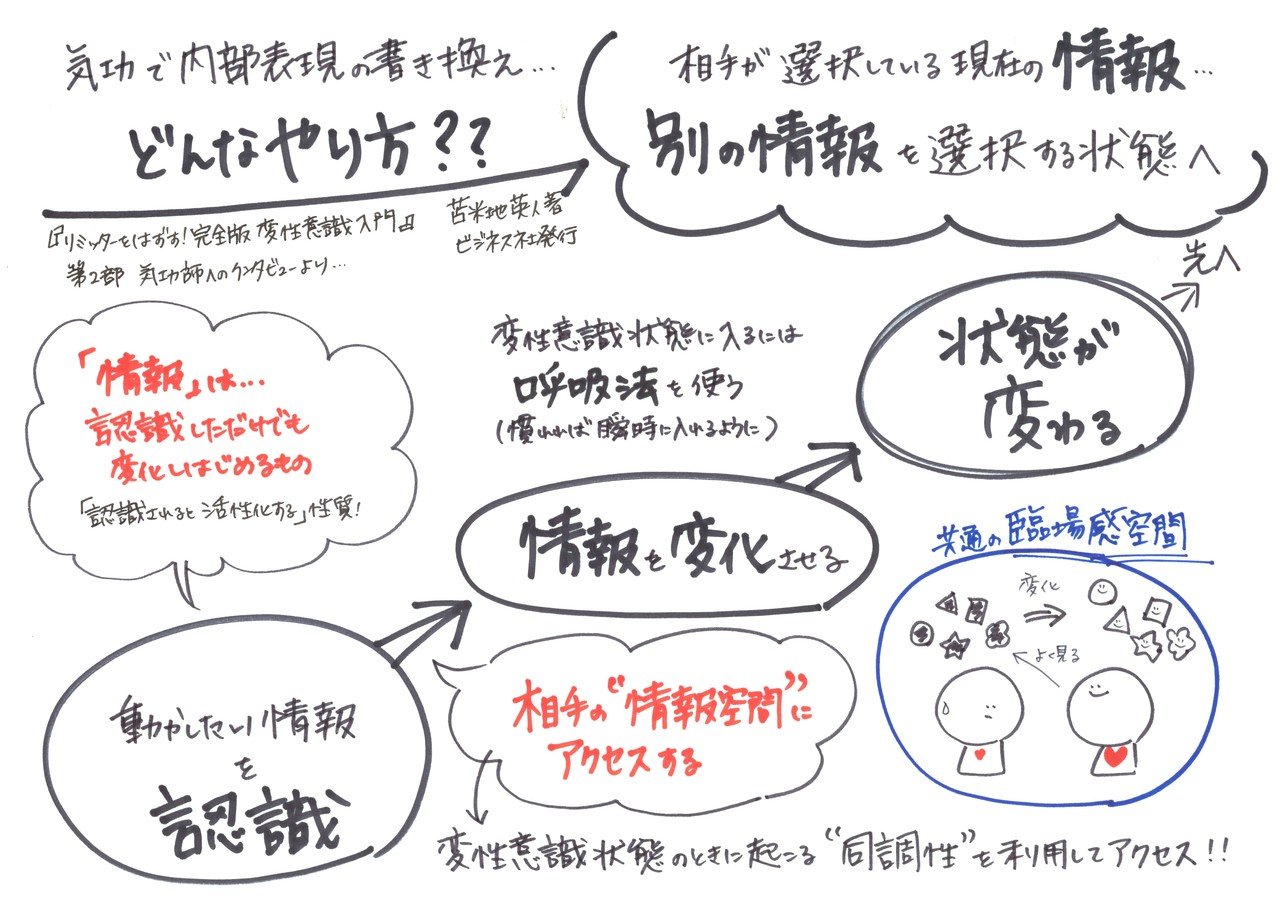 気功で内部表現の書き換え…
どんなやり方??
『リミッターをはずす!完全版 変性意識入門』
第2部 気功師へのインタビューより…
苫米地英人著
ビジネス社発行
相手が選択している現在の情報…
別の情報を選択する状態へ
先へ
状態が
変わる
変性意識状態に入るには
呼吸法を使う
(慣れれば瞬時に入れるように)
「情報」は…
認識しただけでも
変化しはじめるもの
「認識されると活性化する」性質!
情報を変化させる
共通の臨場感空間
変化
よく見る
動かしたい情報
を
認識
相手の“情報空間”に
アクセスする
変性意識状態のときに起こる“同調性”を利用してアクセス!!